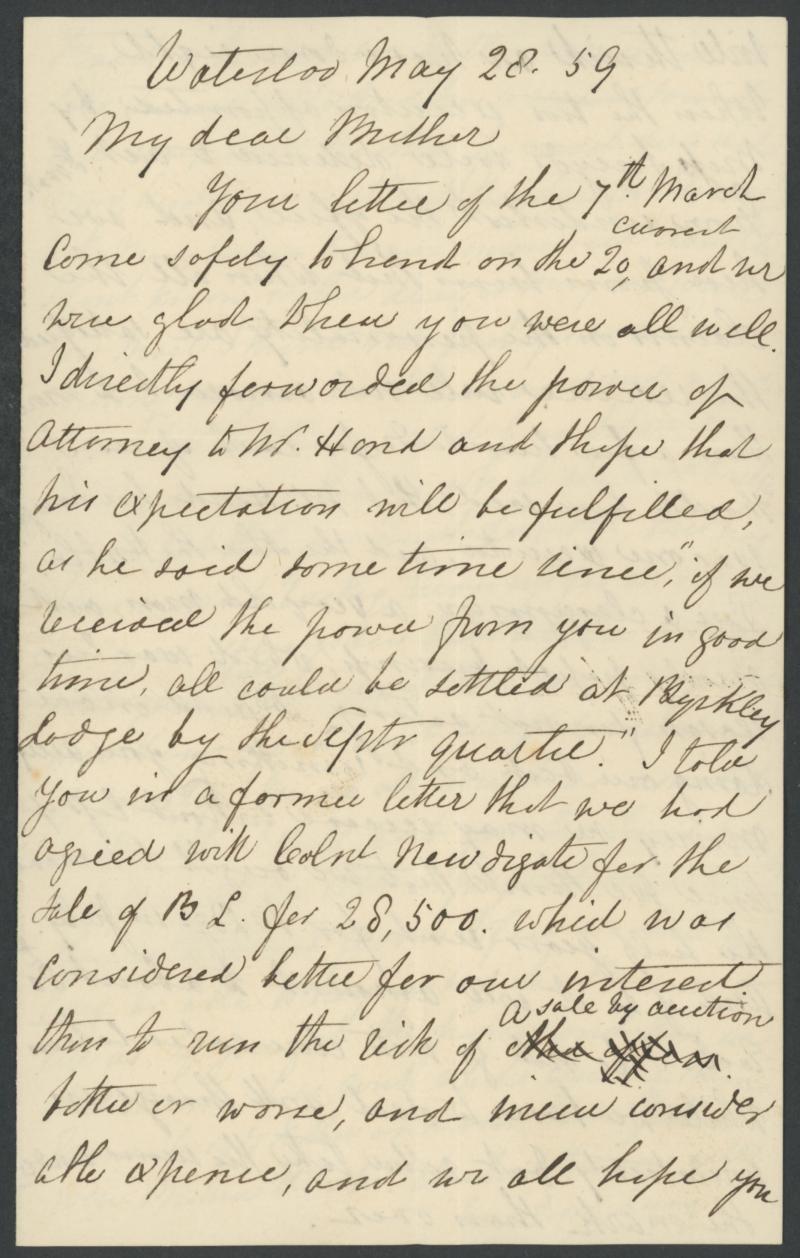 Waterloo May 28. 59
My dear Mother
Your letter of the 7th March
current
Come safely to hand on the 20, and we
were glad to hear you were all well.
I directly forwarded the power of
Attorney to Mr. Hand and I hope that
his expectation will be fulfilled,
as he said some time since, "if we
received the power from you in good
time, all could be settled at Byrkley
Lodge by the Septr quarter." I told
you in a former letter that we had
agreed with Colnl Newdigate for the
sale of B L. for 28,500. which was
considered better for our interest
A sale by auction
than to run the risk of other offers
better or worse, and incur consider
able expence, and we all hope you